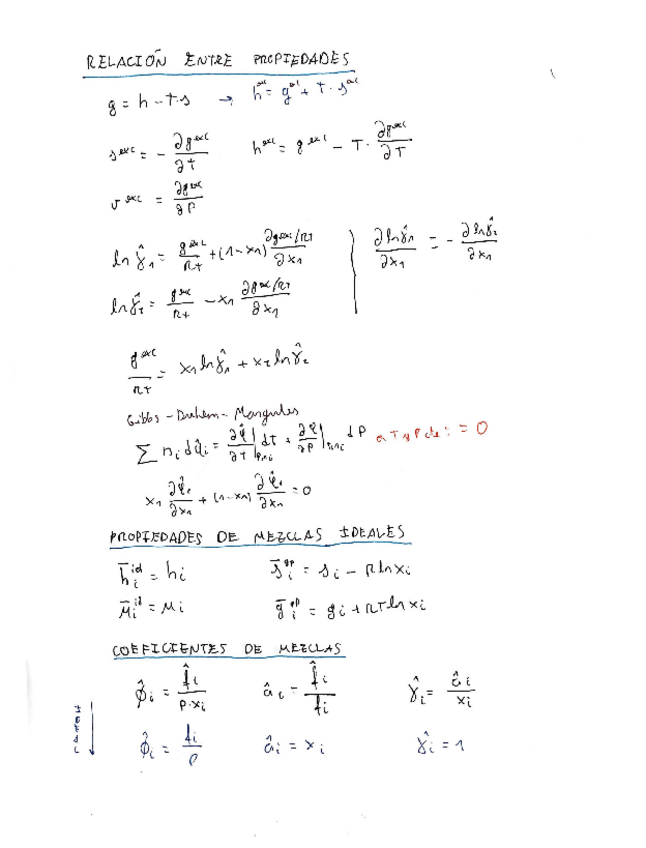 RELACIÓN ENTRE PROPIEDADES
g = h - T·s → h^exc = g^exc + T·s^exc
s^exc = - ∂g^exc/∂T    h^exc = g^exc - T· ∂g^exc/∂T
v^exc = ∂g^exc/∂P
ln γ̂₁ = g^exc/RT + (1-x₁) ∂g^exc/RT/∂x₁ | ∂ln γ̂₁/∂x₁ = - ∂ln γ̂₂/∂x₁
ln γ̂₂ = g^exc/RT - x₁ ∂g^exc/RT/∂x₁
g^exc/RT = x₁ ln γ̂₁ + x₂ ln γ̂₂
Gibbs - Duhem - Margules
∑ nᵢ dφ̂ᵢ = ∂φ̂/∂T|P,nᵢ dT + ∂φ̂/∂P|T,nᵢ dP a T y P cte: = 0
x₁ ∂φ̂₁/∂x₁ + (1-x₁) ∂φ̂₂/∂x₁ = 0
PROPIEDADES DE MEZCLAS IDEALES
h̄ᵢ^id = hᵢ    s̄ᵢ^gp = sᵢ - R ln xᵢ
μ̄ᵢ^id = μᵢ    ḡᵢ^gp = gᵢ + RT ln xᵢ
COEFICIENTES DE MEZCLAS
φ̂ᵢ = f̂ᵢ/P·xᵢ    âᵢ = f̂ᵢ/fᵢ    γ̂ᵢ = âᵢ/xᵢ
IDEAL
φ̂ᵢ = fᵢ/P    âᵢ = xᵢ    γ̂ᵢ = 1